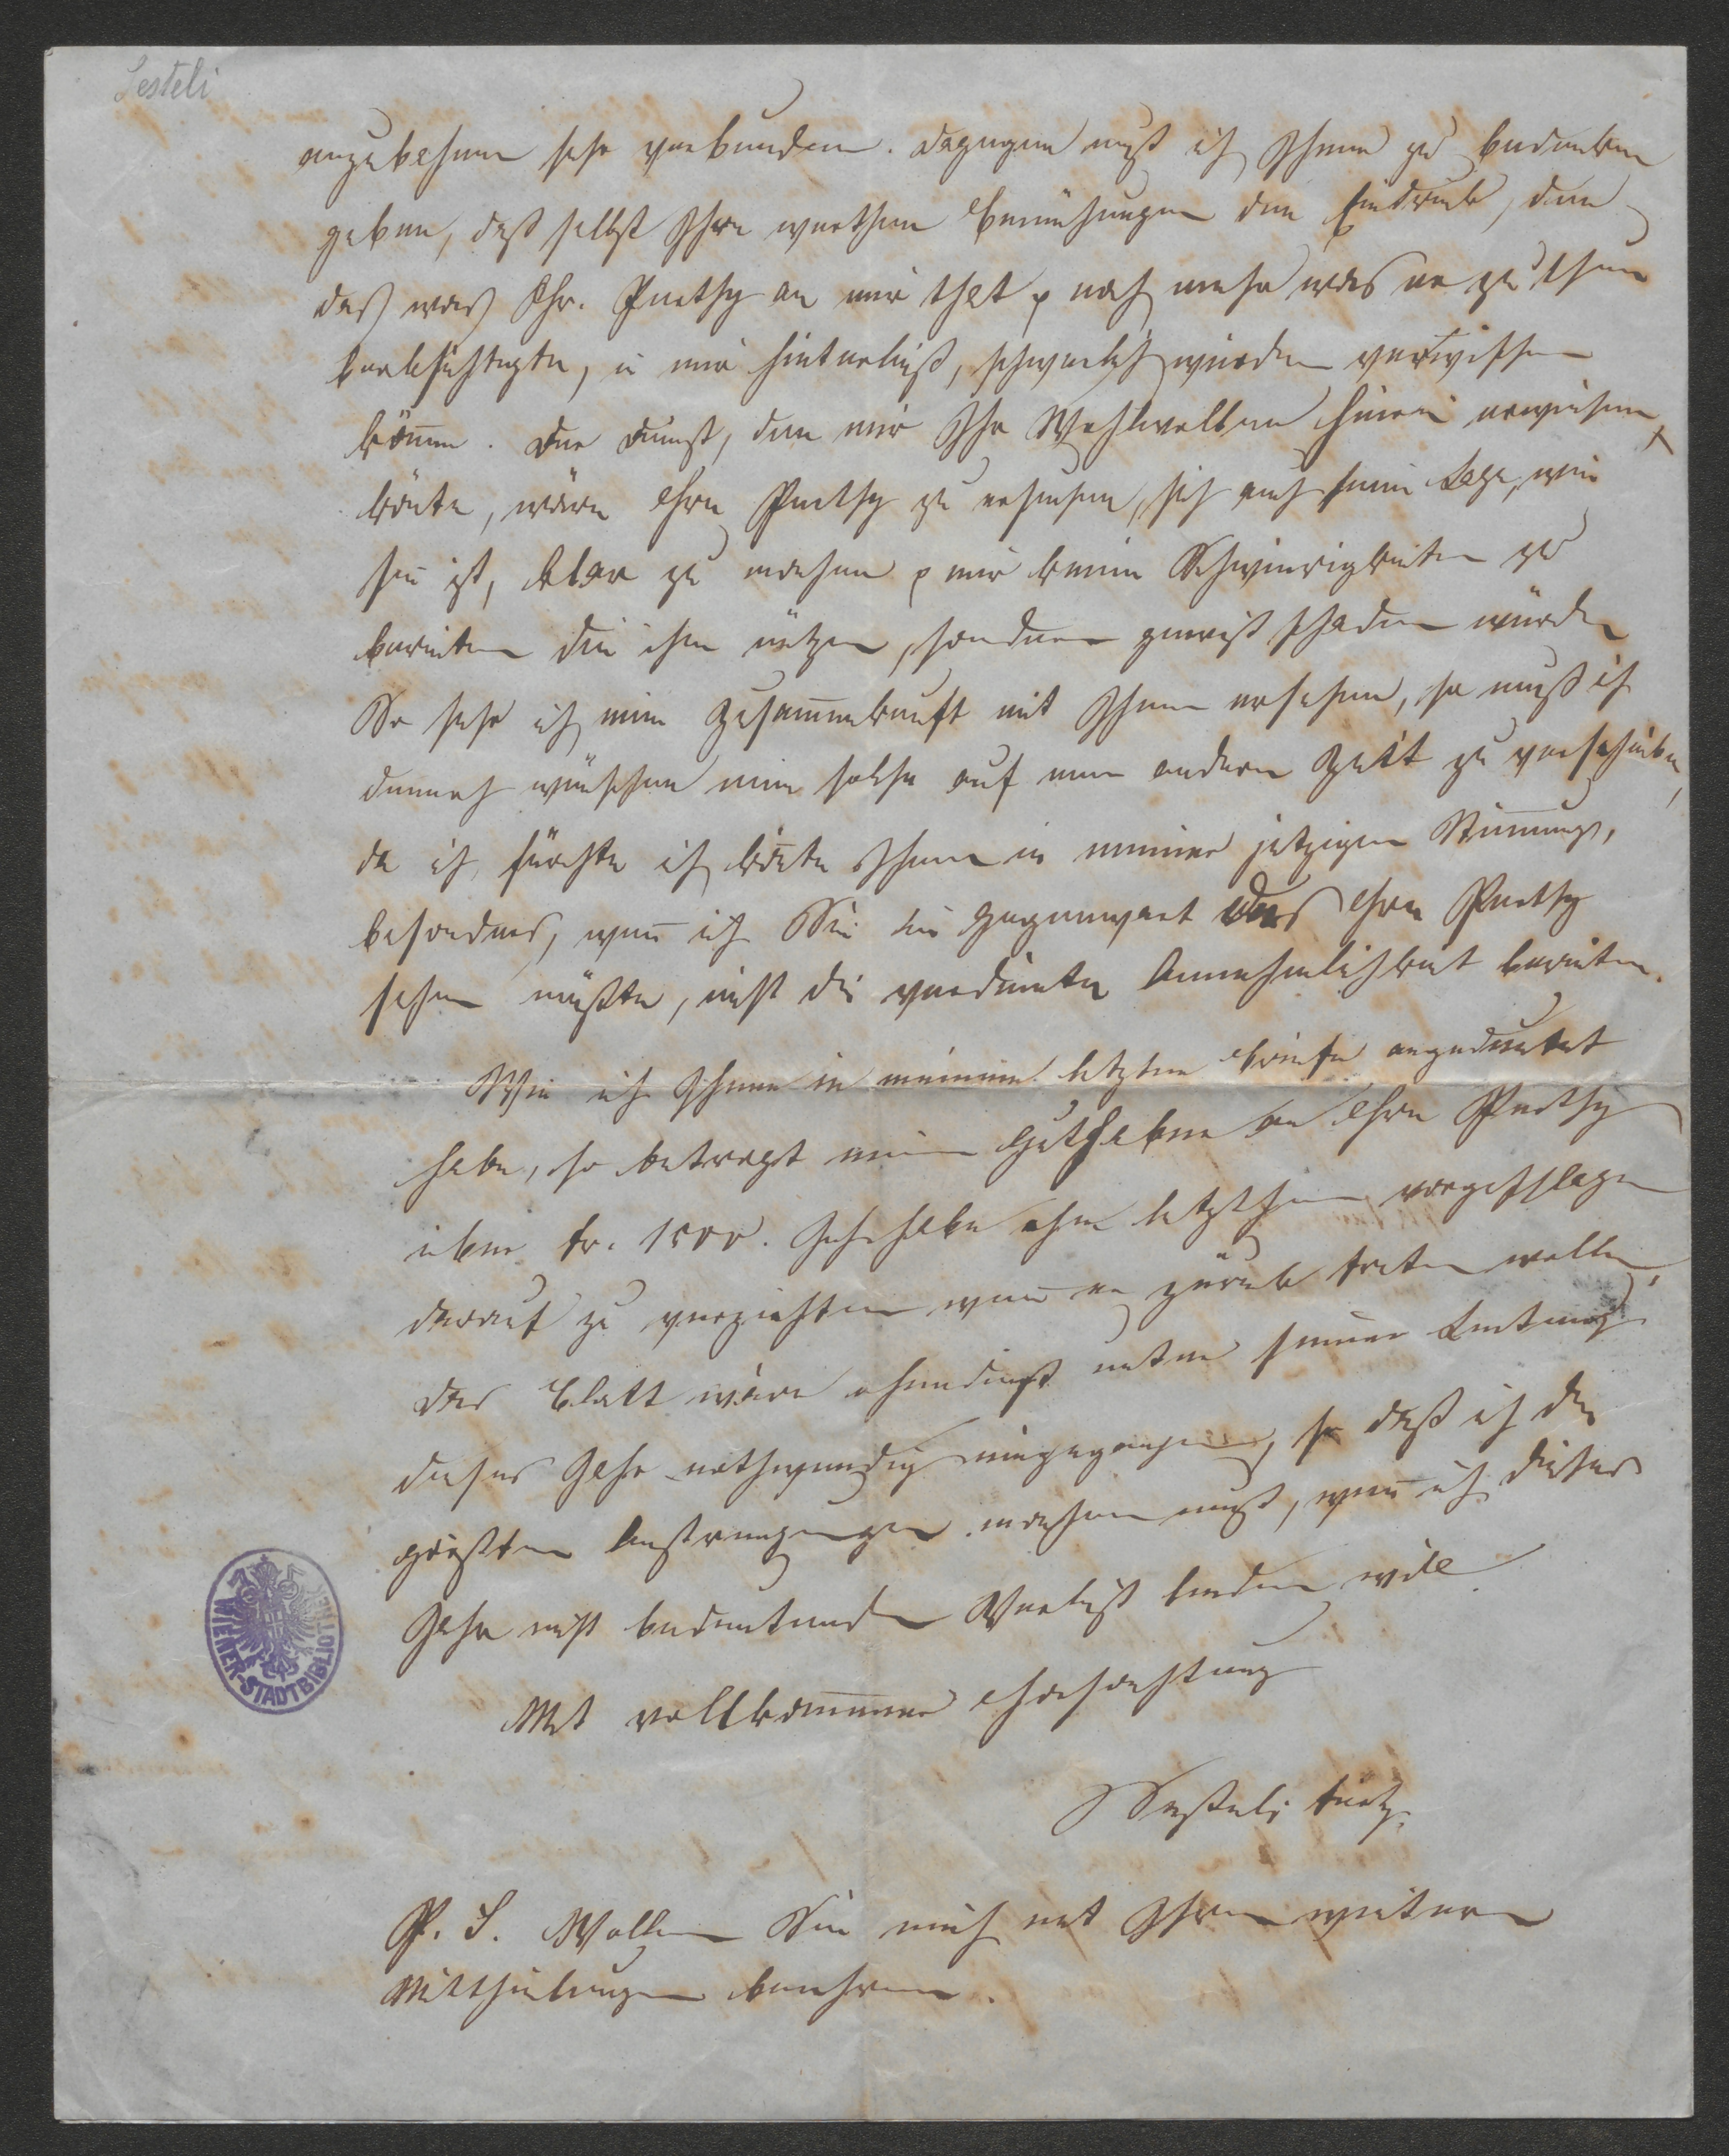 Sesteli
anzubahnen sehr verbunden. Dagegen muß ich Ihnen zu bedenken
geben, daß selbst Ihre werthen Bemühungen den Eindruck, den
das was Hr. Puethy an mir that & noch mehr was er zu thun
beabsichtigte, in mir hinterließ, schwerlich würden verwischen
können. Der Dienst, den mir Ihr Wohlwollen hierin erweisen
könte, wäre Hrn Puethy zu ersuchen, sich auch seine Lage, wie
sie ist, klar zu machen & mir keine Schwierigkeiten zu
bereiten die ihm nützen, sondern gewiß schaden würden
So sehr ich eine Zusammenkunft mit Ihnen ersehne, so muß ich
dennoch wünschen eine solche auf eine andere Zeit zu verschieben,
da ich fürchte ich könte Ihnen in meiner jetzigen Stimmung,
besonders, wenn ich Sie in Gegenwart des Hrn Puethy
sehen müßte, nicht die verdiente Annehmlichkeit bereiten.
Wie ich Ihnen in meinem letzten Briefe angedeutet
habe, so beträgt mein Guthaben an Hrn Puethy
über fr. 1500. Ich habe ihm letzthin vorgeschlagen
darauf zu verzichten wenn er zurück treten wolle,
das Blatt wäre ohnedieß unter seiner Leitung
dieses Jahr nothwendig eingegangen, so daß ich die
größten Anstrengungen machen muß, wenn ich dieses
Jahr nicht bedeutenden Verlust leiden will
Mit vollkommener Hochachtung
Jent
P. S. Wollen Sie mich mit Ihren weitern
Mittheilungen beehren.
WIENER-STADTBIBLIOTHEK